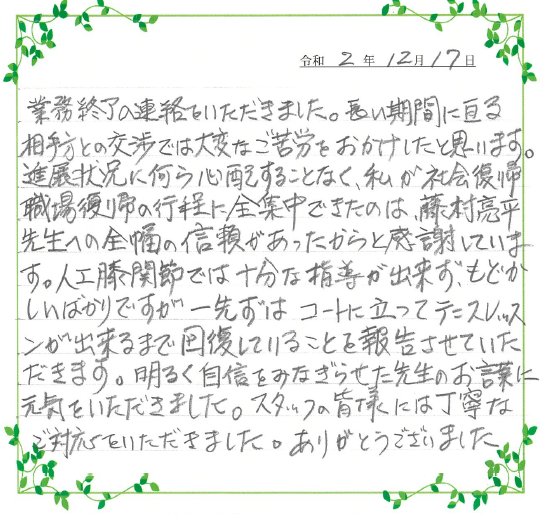 令和 2年 12月 17日
業務終了の連絡をいただきました。長い期間に亘る
相手方との交渉では大変なご苦労をおかけしたと思います。
進展状況に何ら心配することなく、私が社会復帰
職場復帰の行程に全集中できたのは、藤村亮平
先生への全幅の信頼があったからと感謝していま
す。人工膝関節では十分な指導が出来ず、もどか
しいばかりですが一先ずは コートに立ってテニスレッス
ンが出来るまで回復していることを報告させていた
だきます。明るく自信をみなぎらせた先生のお言葉に
元気をいただきました。スタッフの皆様には丁寧な
ご対応をいただきました。ありがとうございました